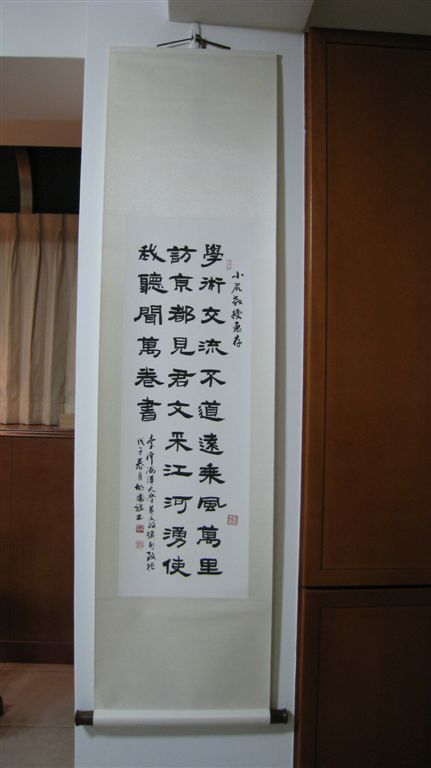 教授惠存
學術交流不道遠乘風萬里
訪京都見君文采江河湧使
我聽聞萬卷書
臺灣海洋大學
戊子春月